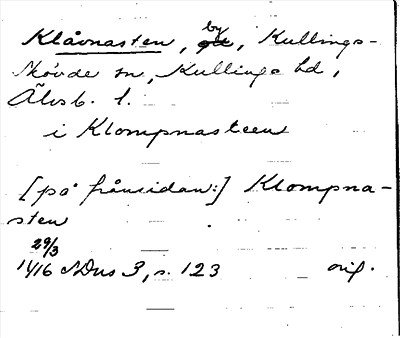 Klåvnasten, by, Kullings-
Skövde sn, Kullings hd,
Älvsb. l.
i Klompnasteen
[på frånsidan:] Klompna-
sten
29/3
1416 SDns 3, s. 123 orig.